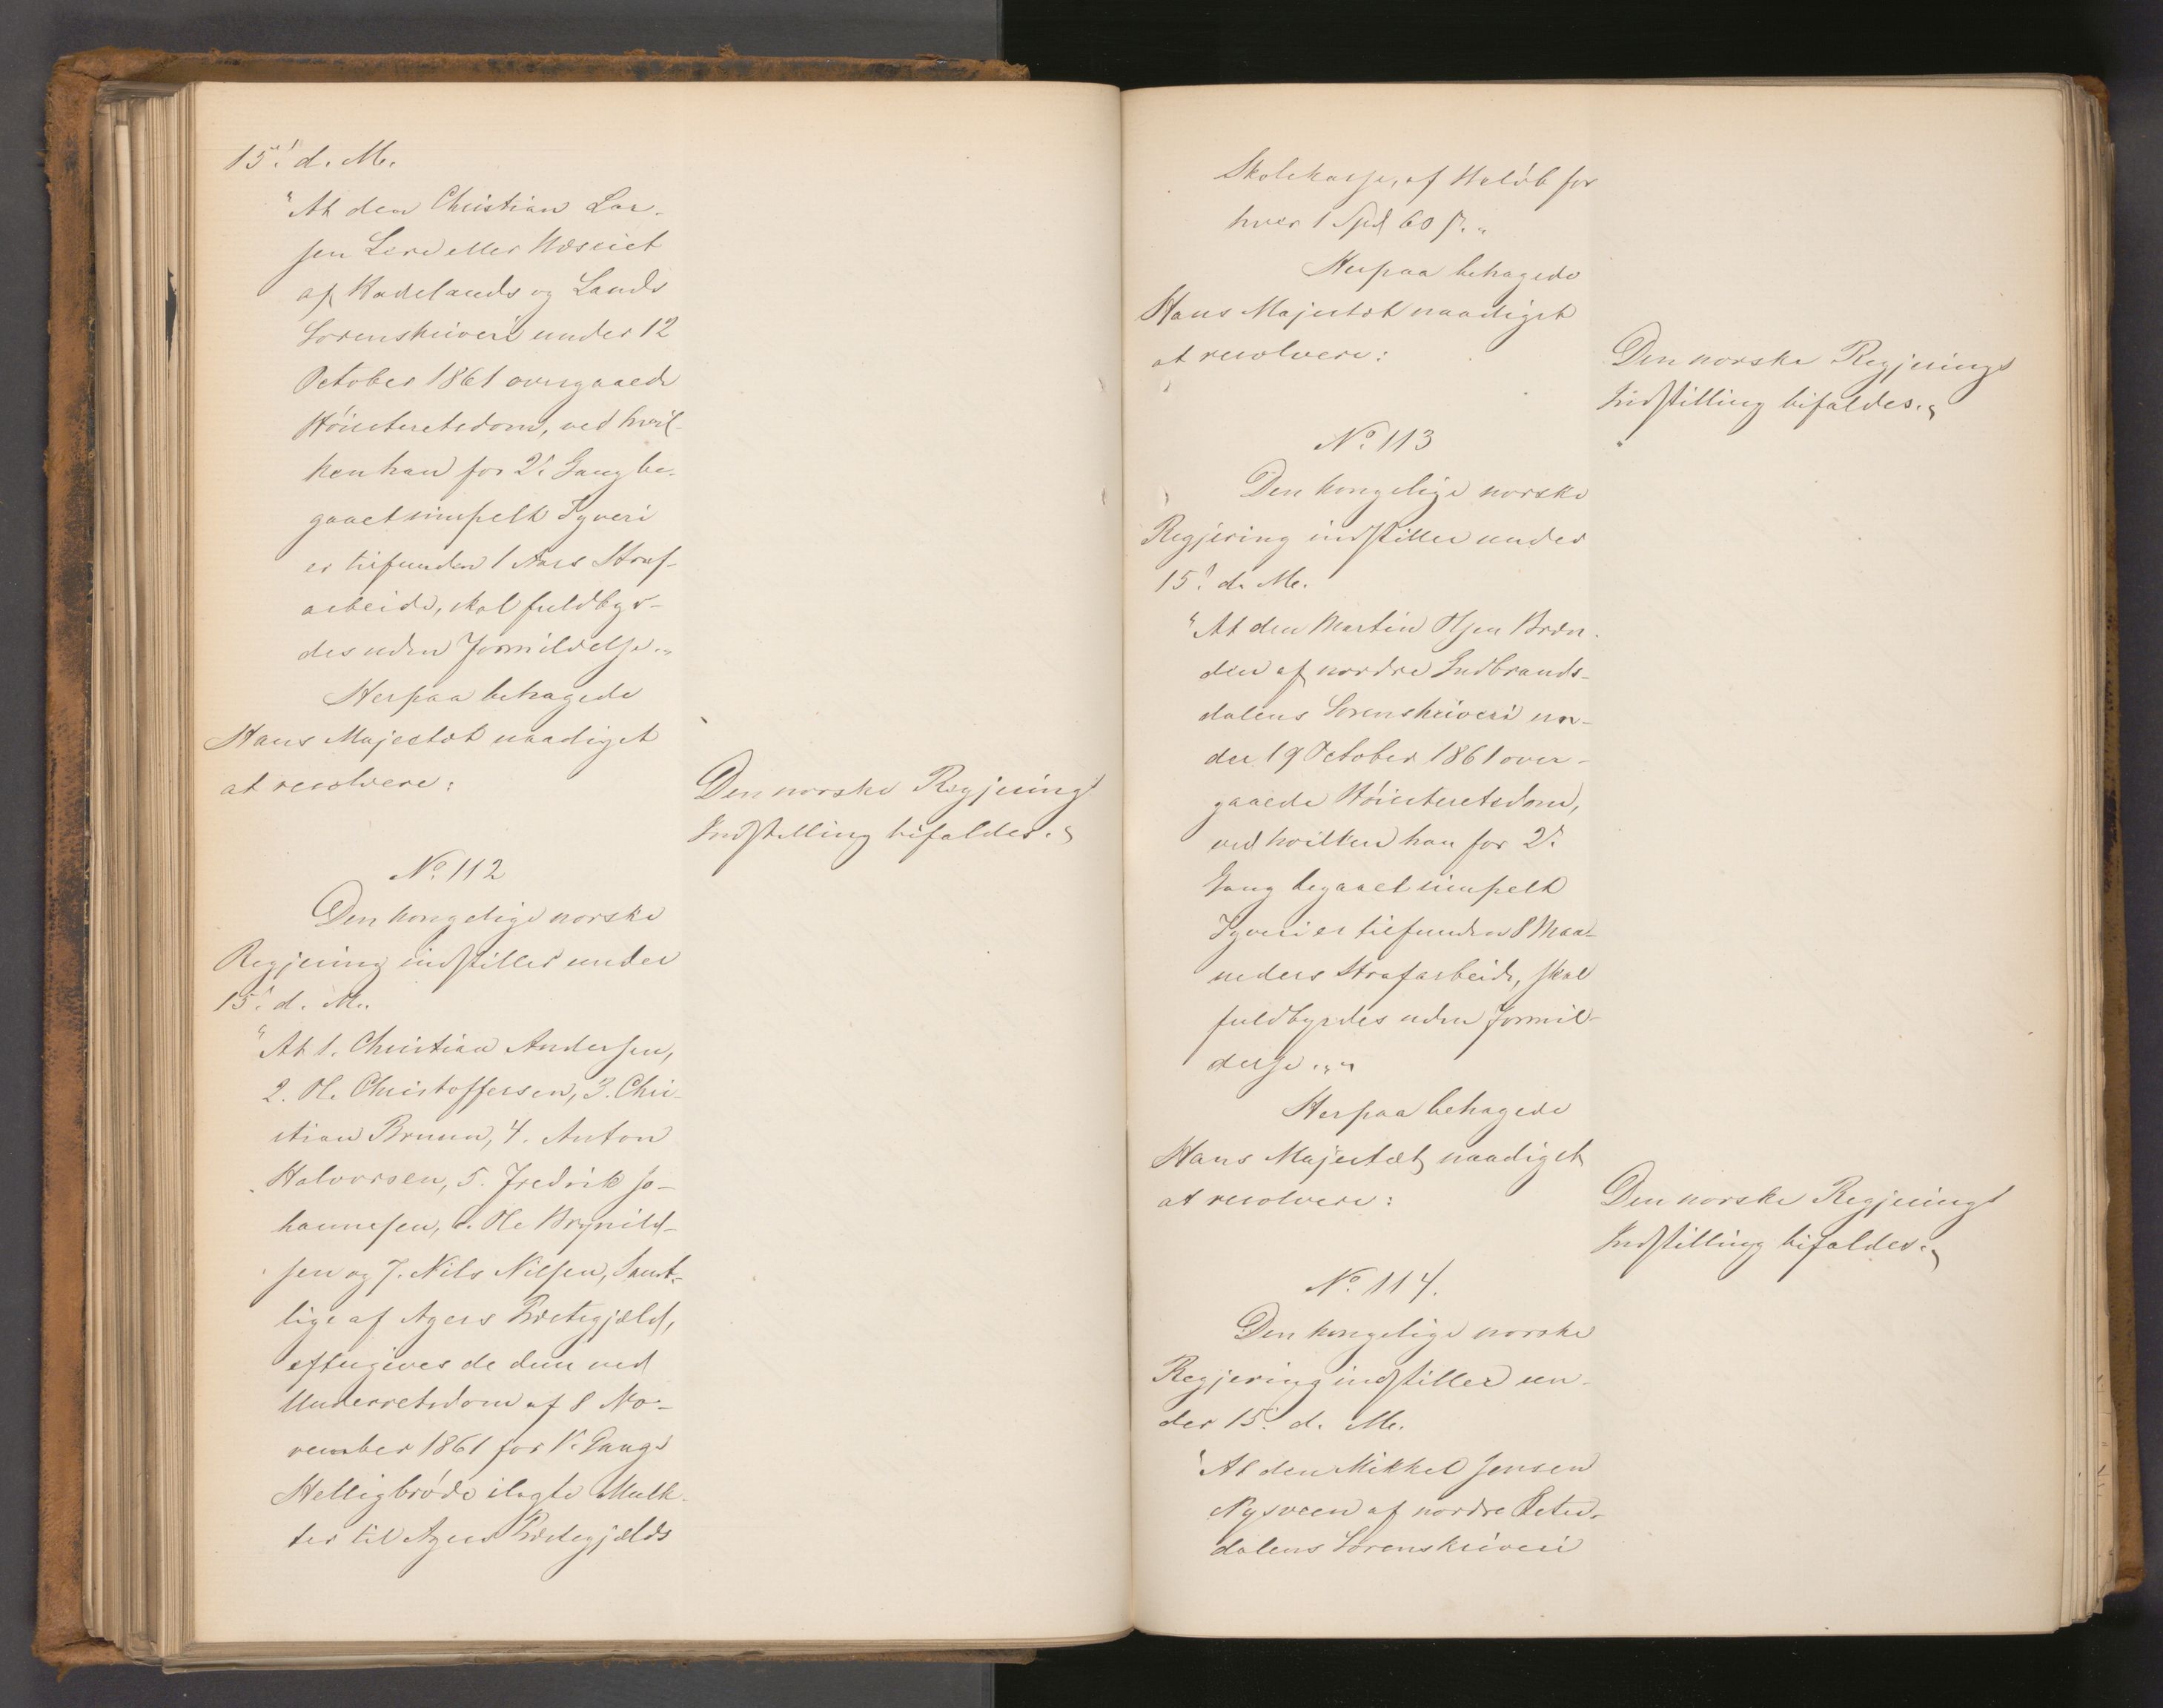 15.' d. M.
"At den Christian Lar-
sen Lere eller Næseiet
af Hadelands og Lands
Sorenskriveri under 12
October 1861 overgaaede
Höiesteretsdom, ved hvil-
ken han for 2.' Gang be-
gaaet simpelt Tyveri
er tilfunden 1 Aars Straf-
arbeide, skal fuldbyr-
des uden Formildelse."
Herpaa behagede
Hans Majestæt naadigst
at resolvere:
Den norske Regjerings
Indstilling bifaldes."
No. 112
Den kongelige norske
Regjering indstiller under
15.' d. M.
"At 1. Christian Andersen,
2. Ole Christoffersen, 3. Chri-
stian Bruun, 4. Anton
Halvorsen, 5. Fredrik Jo-
hannesen, 6. Ole Brynild-
sen og 7. Nils Nilsen, Samt-
lige af Agers Præstegjæld,
eftergives de dem ved
Underretsdom af 8 No-
vember 1861 for 1.' Gangs
Helligbröde ilagte Mulk-
ter til Agers Præstegjælds
Skolekasse, af Belöb for
hver 1 Spd 60 s."
Herpaa behagede
Hans Majestæt naadigst
at resolvere:
Den norske Regjerings
Indstilling bifaldes."
No. 113
Den kongelige norske
Regjering indstiller under
15.' d. M.
"At den Martin Olsen Bræn-
den af nordre Gudbrands-
dalens Sorenskriveri un-
der 19 October 1861 over-
gaaede Höiesteretsdom,
ved hvilken han for 2.'
Gang begaaet simpelt
Tyveri er tilfunden 8 Maa-
neders Strafarbeide, skal
fuldbyrdes uden Formil-
delse.""
Herpaa behagede
Hans Majestæt naadigst
at resolvere:
Den norske Regjerings
Indstilling bifaldes."
No. 114.
Den kongelige norske
Regjering indstiller un-
der 15.' d. M.
"At den Mikkel Jensen
Nysveen af nordre Öster-
dalens Sorenskriveri